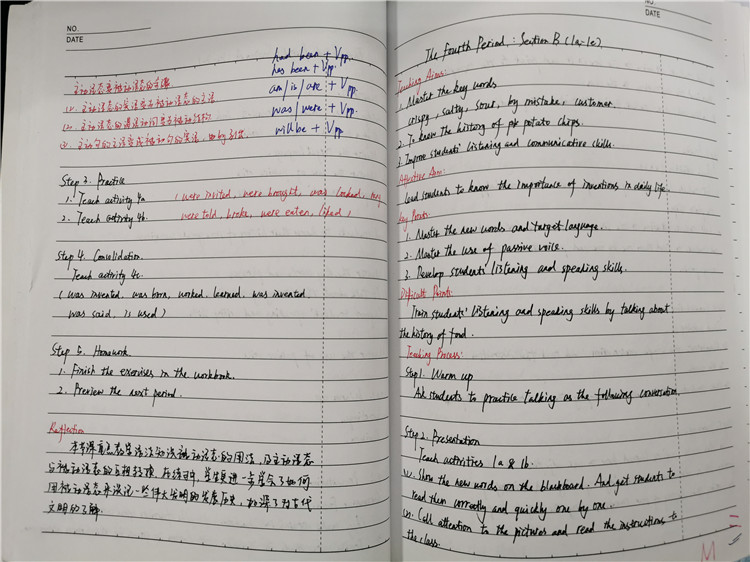 NO.
DATE
had been + Vpp.
has been + Vpp.
主动语态变被动语态的步骤
am / is / are + Vpp.
(1). 主动语态的宾语变为被动语态的主语
was / were + Vpp.
(2). 主动语态的谓语动词变为被动形式
will be + Vpp.
(3). 主动句的主语变成被动句的宾语, 由by引出
Step 3. Practice
1. Teach activity 4a ( were invited, were brought, was locked,
2. Teach activity 4b. were told, broke, were eaten, liked )
Step 4. Consolidation.
Teach activity 4c.
( was invented, was born, worked, learned, was invented
was said, is used )
Step 5. Homework
1. Finish the exercises in the workbook.
2. Preview the next period.
Reflection
本节课重点在学语法知识被动语态的用法, 及主动语态
与被动语态的互相转换, 在练习中, 学生更进一步学会了如何
用被动语态来谈论一些伟大发明的发展历史, 加深了对古代
文明的了解.
NO
DATE
The fourth Period: Section B (1a-1e)
Teaching Aims:
1. Master the key words
crispy, salty, sour, by mistake, customer.
2. To know the history of potato chips.
3. Improve students' listening and communicative skills.
Affective Aim:
Lead students to know the importance of inventions in daily life
Key Points:
1. Master the new words and target language.
2. Master the use of passive voice.
3. Develop students' listening and speaking skills.
Difficult Points:
Train students' listening and speaking skills by talking about
the history of food.
Teaching Process:
Step 1. Warm up
Ask students to practice talking as the following conversation.
Step 2. Presentation
Teach activities 1a & 1b.
(1). Show the new words on the blackboard. And get students to
read them correctly and quickly one by one.
(2). Call attention to the pictures and read the instructions to
the class.